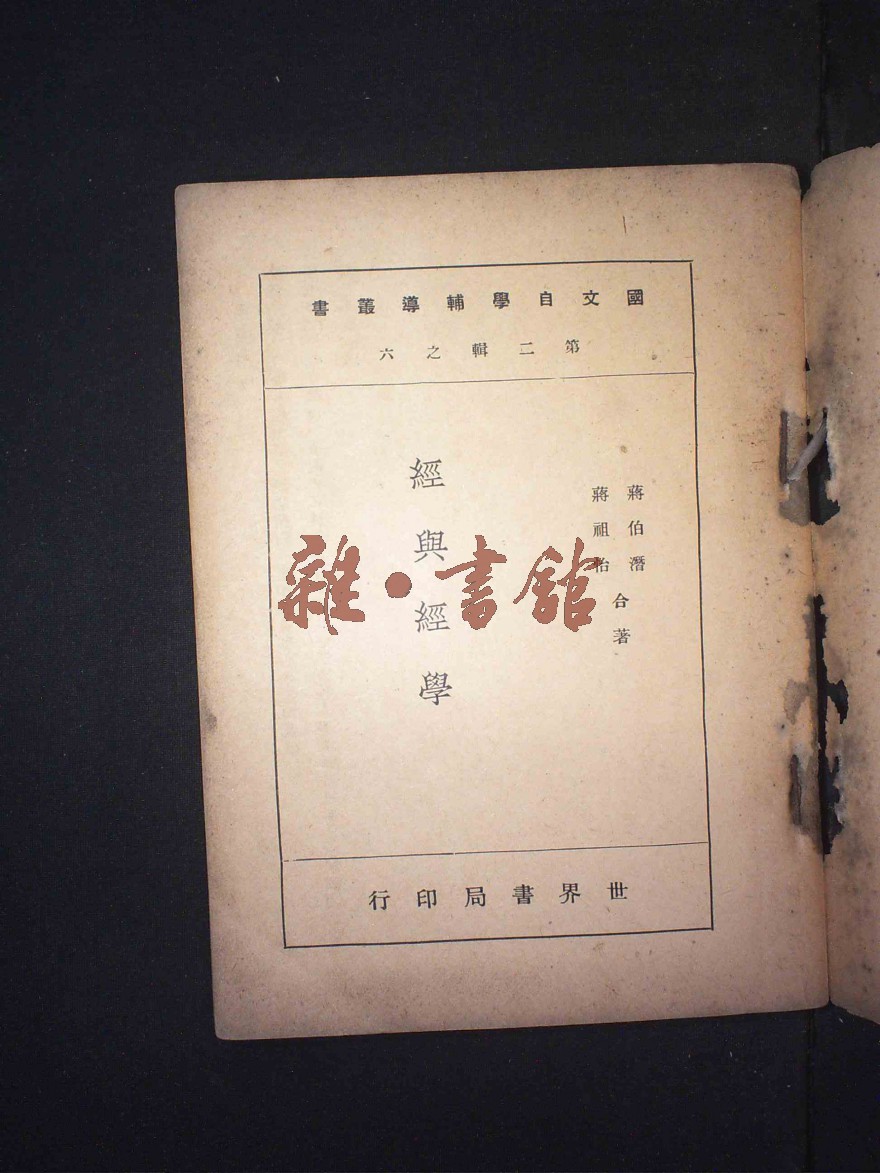 國文自學輔導叢書
第二輯之六
蔣伯潛
蔣祖怡
合著
經與經學
世界書局印行
雜·書館